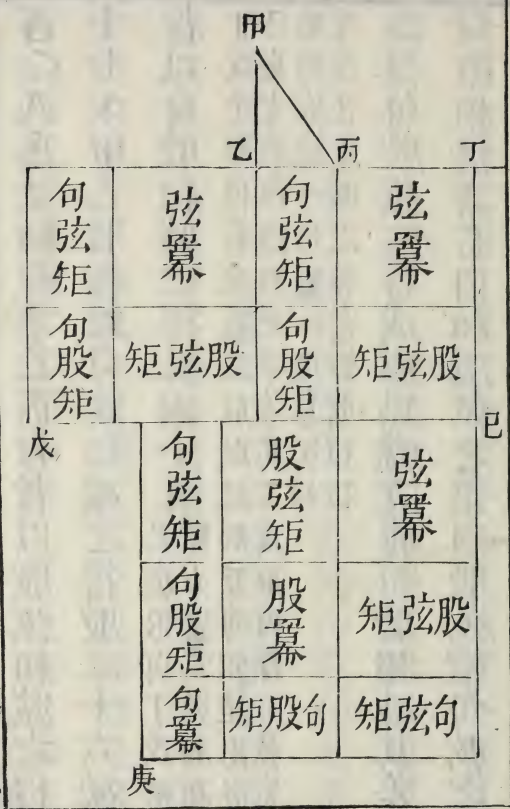 甲
乙 丙 丁
句弦矩 弦冪 句弦矩 弦冪
句股矩 矩弦股 句股矩 矩弦股
戊 巳
句弦矩 股弦矩 弦冪
句股矩 股冪 矩弦股
句冪 矩股句 矩弦句
庚